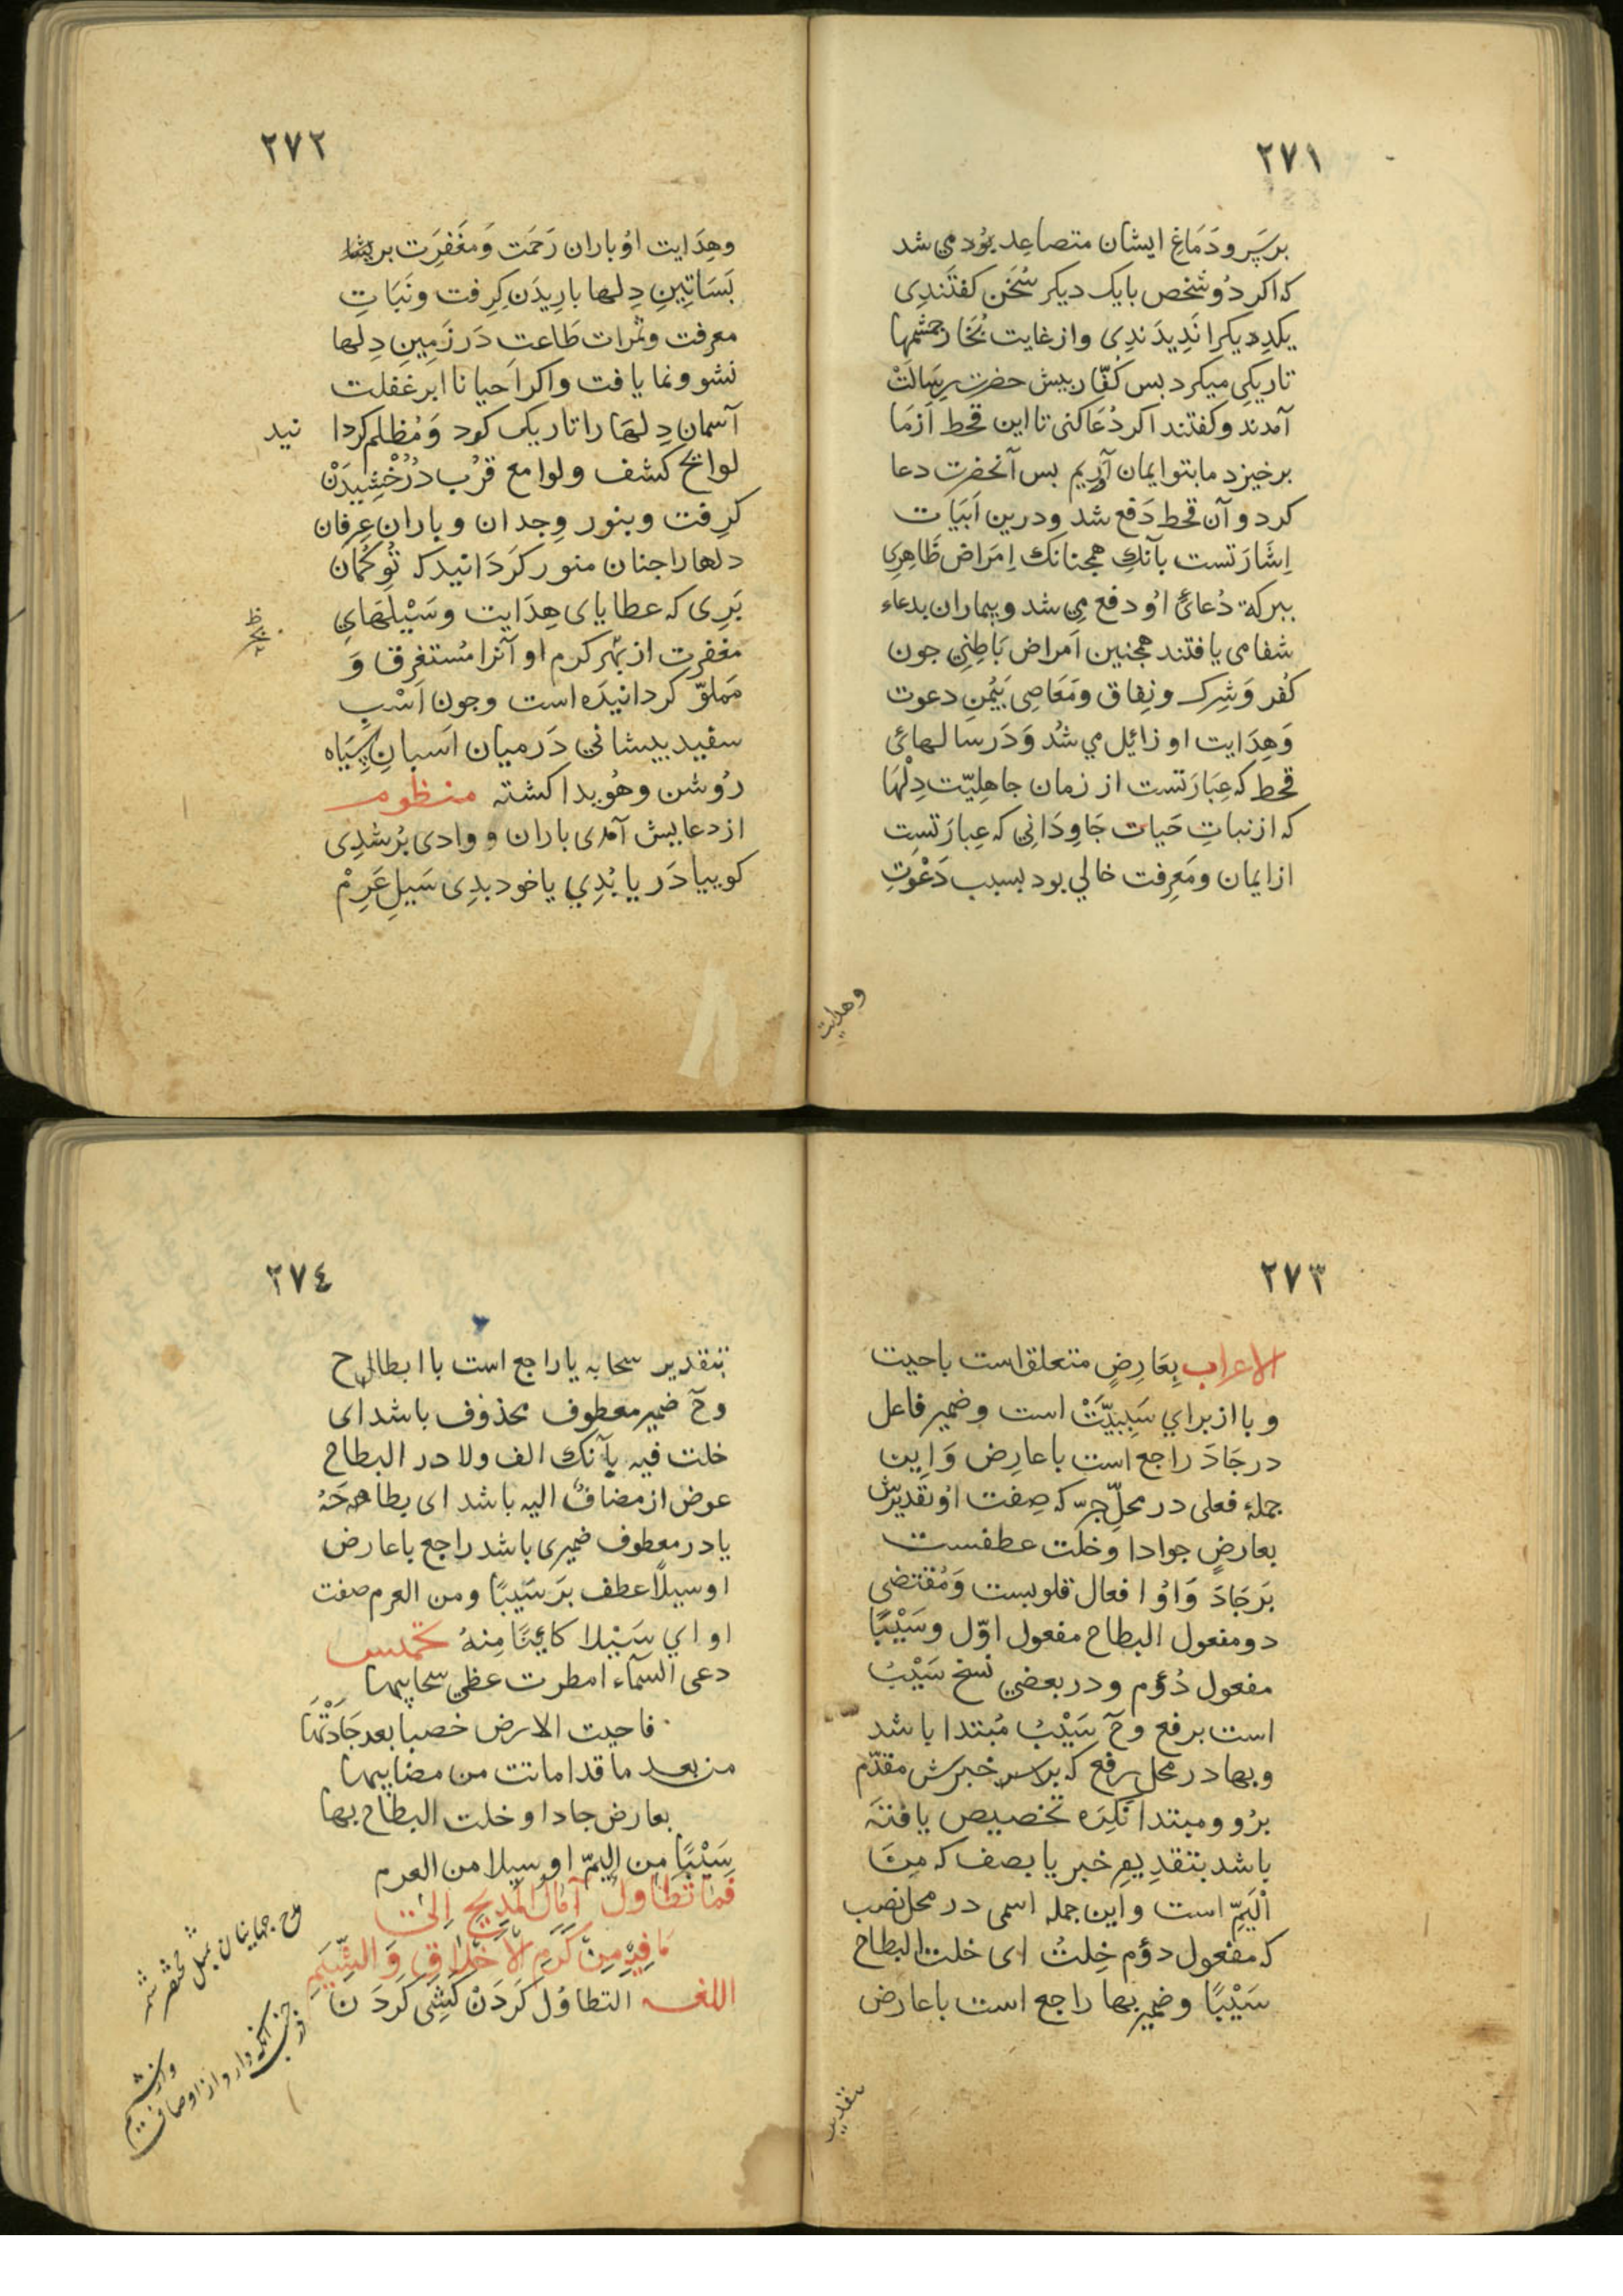 ٢٧١
برسر و دَمَاغِ ایشان متصاعِد بوُد می شد
که اکر دُو شخص با یک دیکر سُخَن کفتَندِی
یکدِیکرا نَدِیدَندِی و از غایت بُخار جشمها
تاریکی میکرد بس کفّار بیش حضرت رِسَالَتْ
آمدند و کفتند اکر دُعَا کنی تا این قحط اَزمَا
برخیزد ما بتو ایمان آرِیم بس آنحضرت دعا
کرد و آن قحط دَفع شد و درین اَبیَات
اِشَارَتست بآنکِ همجنانک اِمَراض ظَاهِرِی
ببرکة دُعائُ او دفع می شد و بیماران بدعاء
شفا می یافتند همجنین اَمراض بَاطِنِی جون
کُفر وَ شِرک و نِفاق و مَعَاصِی بَیُمنِ دعوت
وَ هِدَایت او زائِل می شُد وَ دَر سَالهائ
قحط که عِبَارَتست از زمان جاهِلیّت دِلْهَا
که از نباتِ حَیات جَاوِدَانِی که عِبارَتست
از ایمان و مَعِرِفت خالی بود بسبب دَعْوَتِ
وهدایت
٢٧٢
وهِدَایت اوُ باران رَحمَت وَ مغَفِرَت بر
بَسَاتِینِ دِلها بارِیدَن کِرِفت و نَبَاتِ
معرفت و ثمرات طَاعت دَر زَمِینِ دِلها
نشو و نما یافت و اکر اَحیانا ابر غفلت
آسمان دِلهَا را تاریک کود وَ مُظلم کردا نید
لوایح کشف و لوامع قرُب دُرُخْشِیدَنْ
کرِفت و بنور وِجدان و باران عِرفان
دلها را جنان منور کَردَانید که تُو کُمَان
بَرِی که عطایای هِدَایت و سَیْلَهَایِ
مغفرت از بهر کرم او آنرا مُستغرق وَ
مَملوّ کردانیدَه است و جون اَسْبِ
سفید بیشانی دَر میان اَسبانِ سِیَاه
رُوشن و هوُیدا کشته منظوم
از دعایش آمدی باران و وادی بُر شدِی
کوییا دَریا بُدِی یا خود بدِی سَیلِ عَرِمْ
٢٧٣
الاعراب بِعَارِضٍ متعلق است با حیت
و با از برای سَبِبیَّتْ است و ضمیر فاعل
در جَادَ راجع است با عارِض وَ اِین
جملهٔ فعلی در محلّ جرّ که صِفت اوُ تقدیرش
بعارضٍ جوادا و خلت عطفست
بَر جَادَ وَ اوُ افعال قلوبست وَ مُقتضی
دو مفعول البطاح مفعول اوّل و سَیْبًا
مفعول دُوُم و در بعضی نسخ سَیْبُ
است برفع و حَ سَیْبُ مُبتدا باشد
و بها در محل رفع که خبرش مقدّم
برُو و مبتدا نَکِرَه تخصیص یافته
باشد بتقدِیم خبر یا بصف که مِنَ
اْلیَمِّ است و این جمله اسمی در محل نصب
که مفعول دؤم خِلتُ ای خلت البطاح
سَیْبًا و ضمیر بها راجع است با عارض
بتقدیر
٢٧٤
بتقدیر سحابه یا راجع است با ابطاح
وحَ ضمیر معطوف محذوف باشد ای
خلت فیه یا آنک الف ولا در البطاح
عوض از مضاف الیه باشد ای بطاحَهُ
یا در معطوف ضمیری باشد راجع با عارض
او سیلًا عطف بَر سَیبًا و من العرم صفت
او ای سَیْلا کائِنًا مِنهُ تخمیس
دعی السمآء امطرت عظی سحایبها
فاحیت الارض خصبا بعد جَادَتْهَا
من بعد ما قد اماتت من مصایبها
بعارض جاد او خلت البطاح بها
سَیْبًا مِن الیمّ او سیلا من العرم
فمَا تَطَاوُل آمَالُ المَدِیحِ اِلیٰ
مَا فِیْهِ مِنْ کَرَمِ الاَخْلاقِ وَ الشِّیَمِ
اللغه التطاوُل کَردَنْ کَشِی کَردَ ن